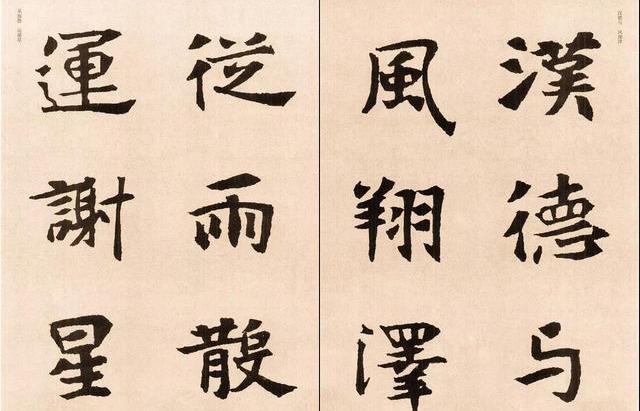 漢德与
風翔澤
従雨散
運謝星